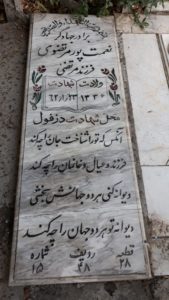 برادر جهادگر
نعمت پورمرتضوی
فرزند مرتضی
ولادت شهادت
۱۳۳۰ ۶۲/۱/۲۳
محل شهادت دزفول
آنکس که تو را شناخت جان را چه کند
فرزند و عیال و خانمان را چه کند
دیوانه کنی هر دو جهانش بخشی
دیوانه تو هر دو جهان را چه کند
قطعه ردیف شماره
۲۸ ۴۸ ۱۵